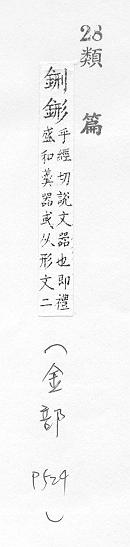 28
類篇
鉶䤯
乎經切說文器也即禮
盛和羹器或从形文二
(金部 P524)